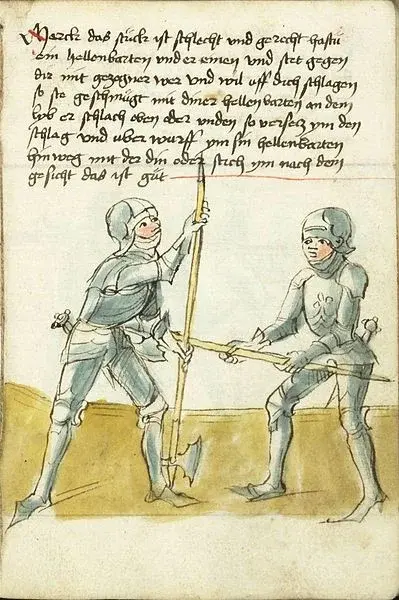 Merck das stuck ist schlecht und gerecht hastu
ein hellenbarten und er einen und stet gegen
dir mit gezogner wer und wil uff dich schlagen
so ste geschmugt mit diner hellenbarten an dem
lyb er schlach oben oder unden so versetz ym den
schlag und uber wurff ym sin hellenbarten
hinweg mit der din oder stich ym nach dem
gesicht das ist gut